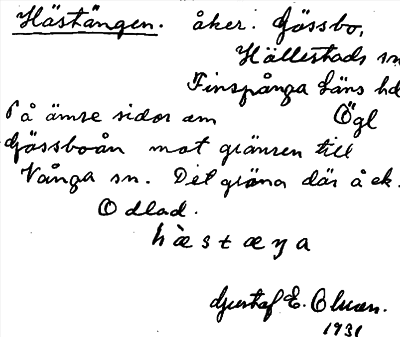 Hästängen. åker. Gössbo,
Hällestads sn
Finspånga Läns hd
På ömse sidor om Ögl
Gössboån mot gränsen till
Vånga sn. Det gräna där å ek.
Odlad.
hæstæŋa
Gustaf E. Olsson.
1931